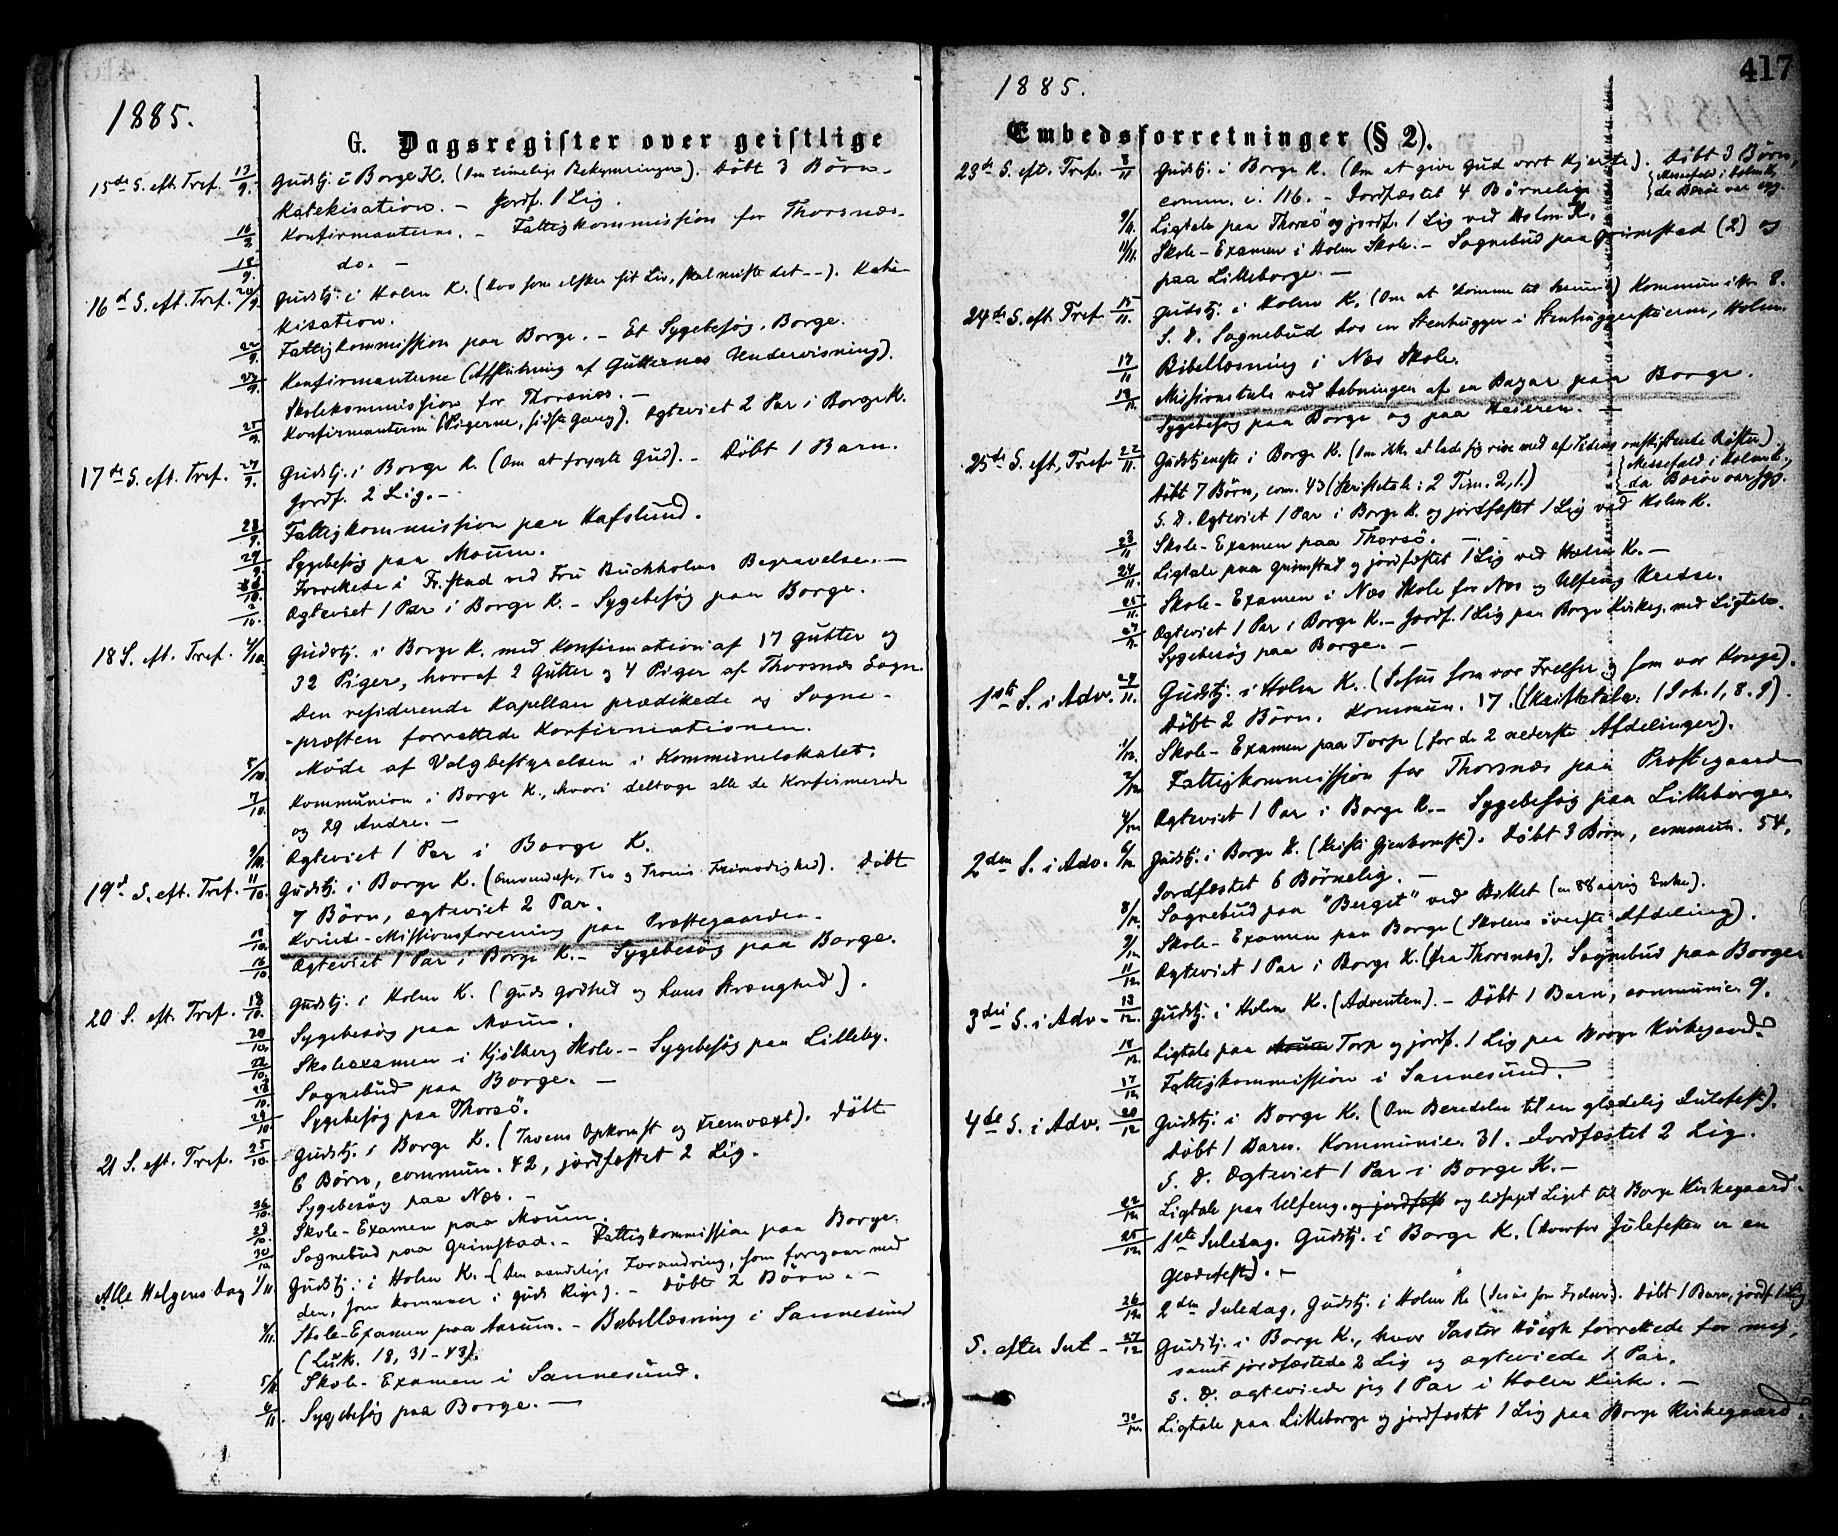 1885.
G. Dagsregister over geistlige
15de S. eft. Tref. 13/9. Gudstj. i Borge K. (Om timelige Bekymringer). Döbt 3 Börn.
Katekisation. – Jordf. 1 Lig.
16/9 Konfirmanterne. – Fattigkommission for Thorsnæs.
18/9. do. –
16d S. eft. Tref. 20/9. Gudstj. i Holm K. (Hvo som elsker sit Liv, skal miste det --). Kate-
kisation.
22/9. Fattigkommission paa Borge. – Et Sygebesøg, Borge.
23/9. Konfirmanterne (Afslutning af Gutternes Undervisning).
Skolekommission for Thorsnæs. –
25/9. Konfirmanterne (Pigerne, sidste Gang). Ægteviet 2 Par i Borge K.
17de S. eft. Tref. 27/9. Gudstj. i Borge K. (Om at frygte Gud). – Döbt 1 Barn.
Jordf. 2 Lig. –
28/9. Fattigkommission paa Hafslund.
29/9. Sygebesøg paa Moum.
Forrettede i Fr.stad ved Fru Buchholms Begravelse. –
2/10. Ægteviet 1 Par i Borge K. – Sygebesøg paa Borge.
18 S. eft. Tref. 4/10. Gudstj. i Borge K. med Konfirmation af 17 Gutter og
32 Piger, hvoraf 2 Gutter og 4 Piger af Thorsnæs Sogn.
Den residerende Kapellan prædikede og Sogne-
præsten forrettede Konfirmationen.
5/10. Møde af Valgbestyrelsen i Kommunelokalet.
7/10. Kommunion i Borge K., hvori deltoge alle de Konfirmerede
og 29 Andre. –
9/10. Ægteviet 1 Par i Borge K.
19d S. eft. Tref. 11/10. Gudstj. i Borge K. (Omvendelse, Tro og Troens Frimodighed). Döbt
7 Börn, ægteviet 2 Par.
Kvinde-Missionsforening paa Præstegaarden.
16/10 Ægteviet 1 Par i Borge K. – Sygebesøg paa Borge.
20 S. eft. Tref. 18/10. Gudstj. i Holm K. (Guds Godhed og hans Strenghed).
20/10. Sygebesøg paa Moum.
22/10. Skoleexamen i Kjölberg Skole. – Sygebesøg paa Lilleby.
Sognebud paa Borge. –
Sygebesøg paa Thorsö.
21 S. eft. Tref. 25/10. Gudstj. i Borge K. (Troens Opkomst og Fremvæxt). Döbt
6 Börn, commun. 42, jordfæstet 2 Lig.
26/10. Sygebesøg paa Næs. –
Skole-Examen paa Moum.
30/10 Sognebud paa Grimstad. – Fattigkommission paa Borge.
Alle Helgens Dag 1/11. Gudstj. i Holm K. – (Den aandelige Forandring, som foregaar med
den, som kommer i Guds Rige). – Döbt 2 Börn. –
4/11. Skole-Examen paa Aarum. – Bibellæsning i Sannesund
(Luk. 18, 31-43).
5/11. Skole-Examen i Sannesund.
6/11. Sygebesøg paa Borge. –
1885.
417
Embedsforretninger (§ 2).
23de S. eft. Tref. 8/11 Gudstj. i Borge K. (Om at give Gud vort Hjerte). Döbt 3 Börn,
comm. i. 116. – Jordfæstet 4 Børnelig.
{Messefald i Holm K.,
da Bøien var syg.
9/11. Ligtale paa Thorsö og jordf. 1 Lig ved Holm K.
11/11. Skole-Examen i Holm Skole. – Sognebud paa Grimstad (2) og
paa Lilleborge. –
24de S. eft. Tref. 15/11. Gudstj. i Holm K. (Om at komme til Jesus) Kommunik. 8.
S. D. Sognebud hos en Stenhugger i Stenhuggerstuerne, Holm.
17/11 Bibellæsning i Næs Skole.
Missionstale ved Aabningen af en Bazar paa Borge.
Sygebesøg paa Borge og paa Heieren. –
25de S. eft. Tref 22/11. Gudstjeneste i Borge K. (Om ikke at lade sig rive med af Tidens omstyrtende Kræfter).
{Messefald i Holm K.,
da Bøien var syg.
Döbt 7 Börn, com. 43 (Skriftetale: 2 Tim. 2, 1.)
S. D. Ægteviet 1 Par i Borge K. og jordfæstet 1 Lig ved Holm K.
23/11 Skole-Examen paa Thorsö. –
24/11. Ligtale paa Grimstad og jordfæstet 1 Lig ved Holm K. –
25/11. Skole-Examen i Næs Skole for Næs og Ulfeng Kredse.
27/11. Ægteviet 1 Par i Borge K. – Jordf. 1 Lig paa Borge Kirkeg. med Ligtale.
Sygebesøg paa Borge. –
1ste S. i Adv. 29/11. Gudstj. i Holm K. (Jesus som vor Frelser og som vor Konge).
Döbt 2 Börn. Kommun. 17. (Skriftetale. 1 Joh. 1, 8. 9).
1/12. Skole-Examen paa Torp (for de 2 nederste Afdelinger).
2/12 Fattigkommission for Thorsnæs paa Præstegaarden
4/12 Ægteviet 1 Par i Borge K. – Sygebesøg paa Lilleborge.
2den S. i Adv. 6/12. Gudstj. i Borge K. (Kristi Gjenkomst). Döbt 3 Börn, commun. 54.
Jordfæstet 6 Börnelig. –
8/12. Sognebud paa "Berget" ved Slottet (en 88 aarig Enke).
9/12 Skole-Examen paa Borge (Skolens överste Afdeling).
11/12 Ægteviet 1 Par i Borge K. (fra Thorsnæs). Sognebud paa Borge
3die S. i Adv. – 13/12. Gudstj. i Holm K. (Adventen). – Döbt 1 Barn, communic. 9.
Ligtale paa Moum Torp og jordf. 1 Lig paa Borge Kirkegaard.
17/12 Fattigkommission i Sannesund.
4de S. i Adv. 20/12 Gudstj. i Borge K. (Om Beredelse til en glædelig Julefest).
Döbt 1 Barn. Kommunic. 31. Jordfæstet 2 Lig.
S. D. Ægteviet 1 Par i Borge K. –
22/12 Ligtale paa Ulfeng, og jordfæst og ledsaget Liget til Borge Kirkegaard.
25/12. 1ste Juledag. Gudstj. i Borge K. (Hvorfor Julefesten er en
Glædefest). –
26/12 2den Juledag. Gudstj. i Holm K. (Jesus som Frelser). Döbt 1 Barn, jordf. 1 Lig
S. efter Jul – 27/12 Gudstj. i Borge K., hvor Pastor Høegh forrettede for mig,
samt jordfæstede 2 Lig og ægteviede 1 Par.
S. D. ægteviede jeg 1 Par i Holm Kirke. –
30/12. Ligtale paa Lilleborge og jordfæstet 1 Lig paa Borge Kirkegaard.